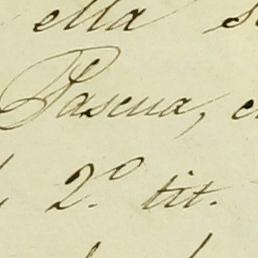 ella
Pascua,
2.º tit.